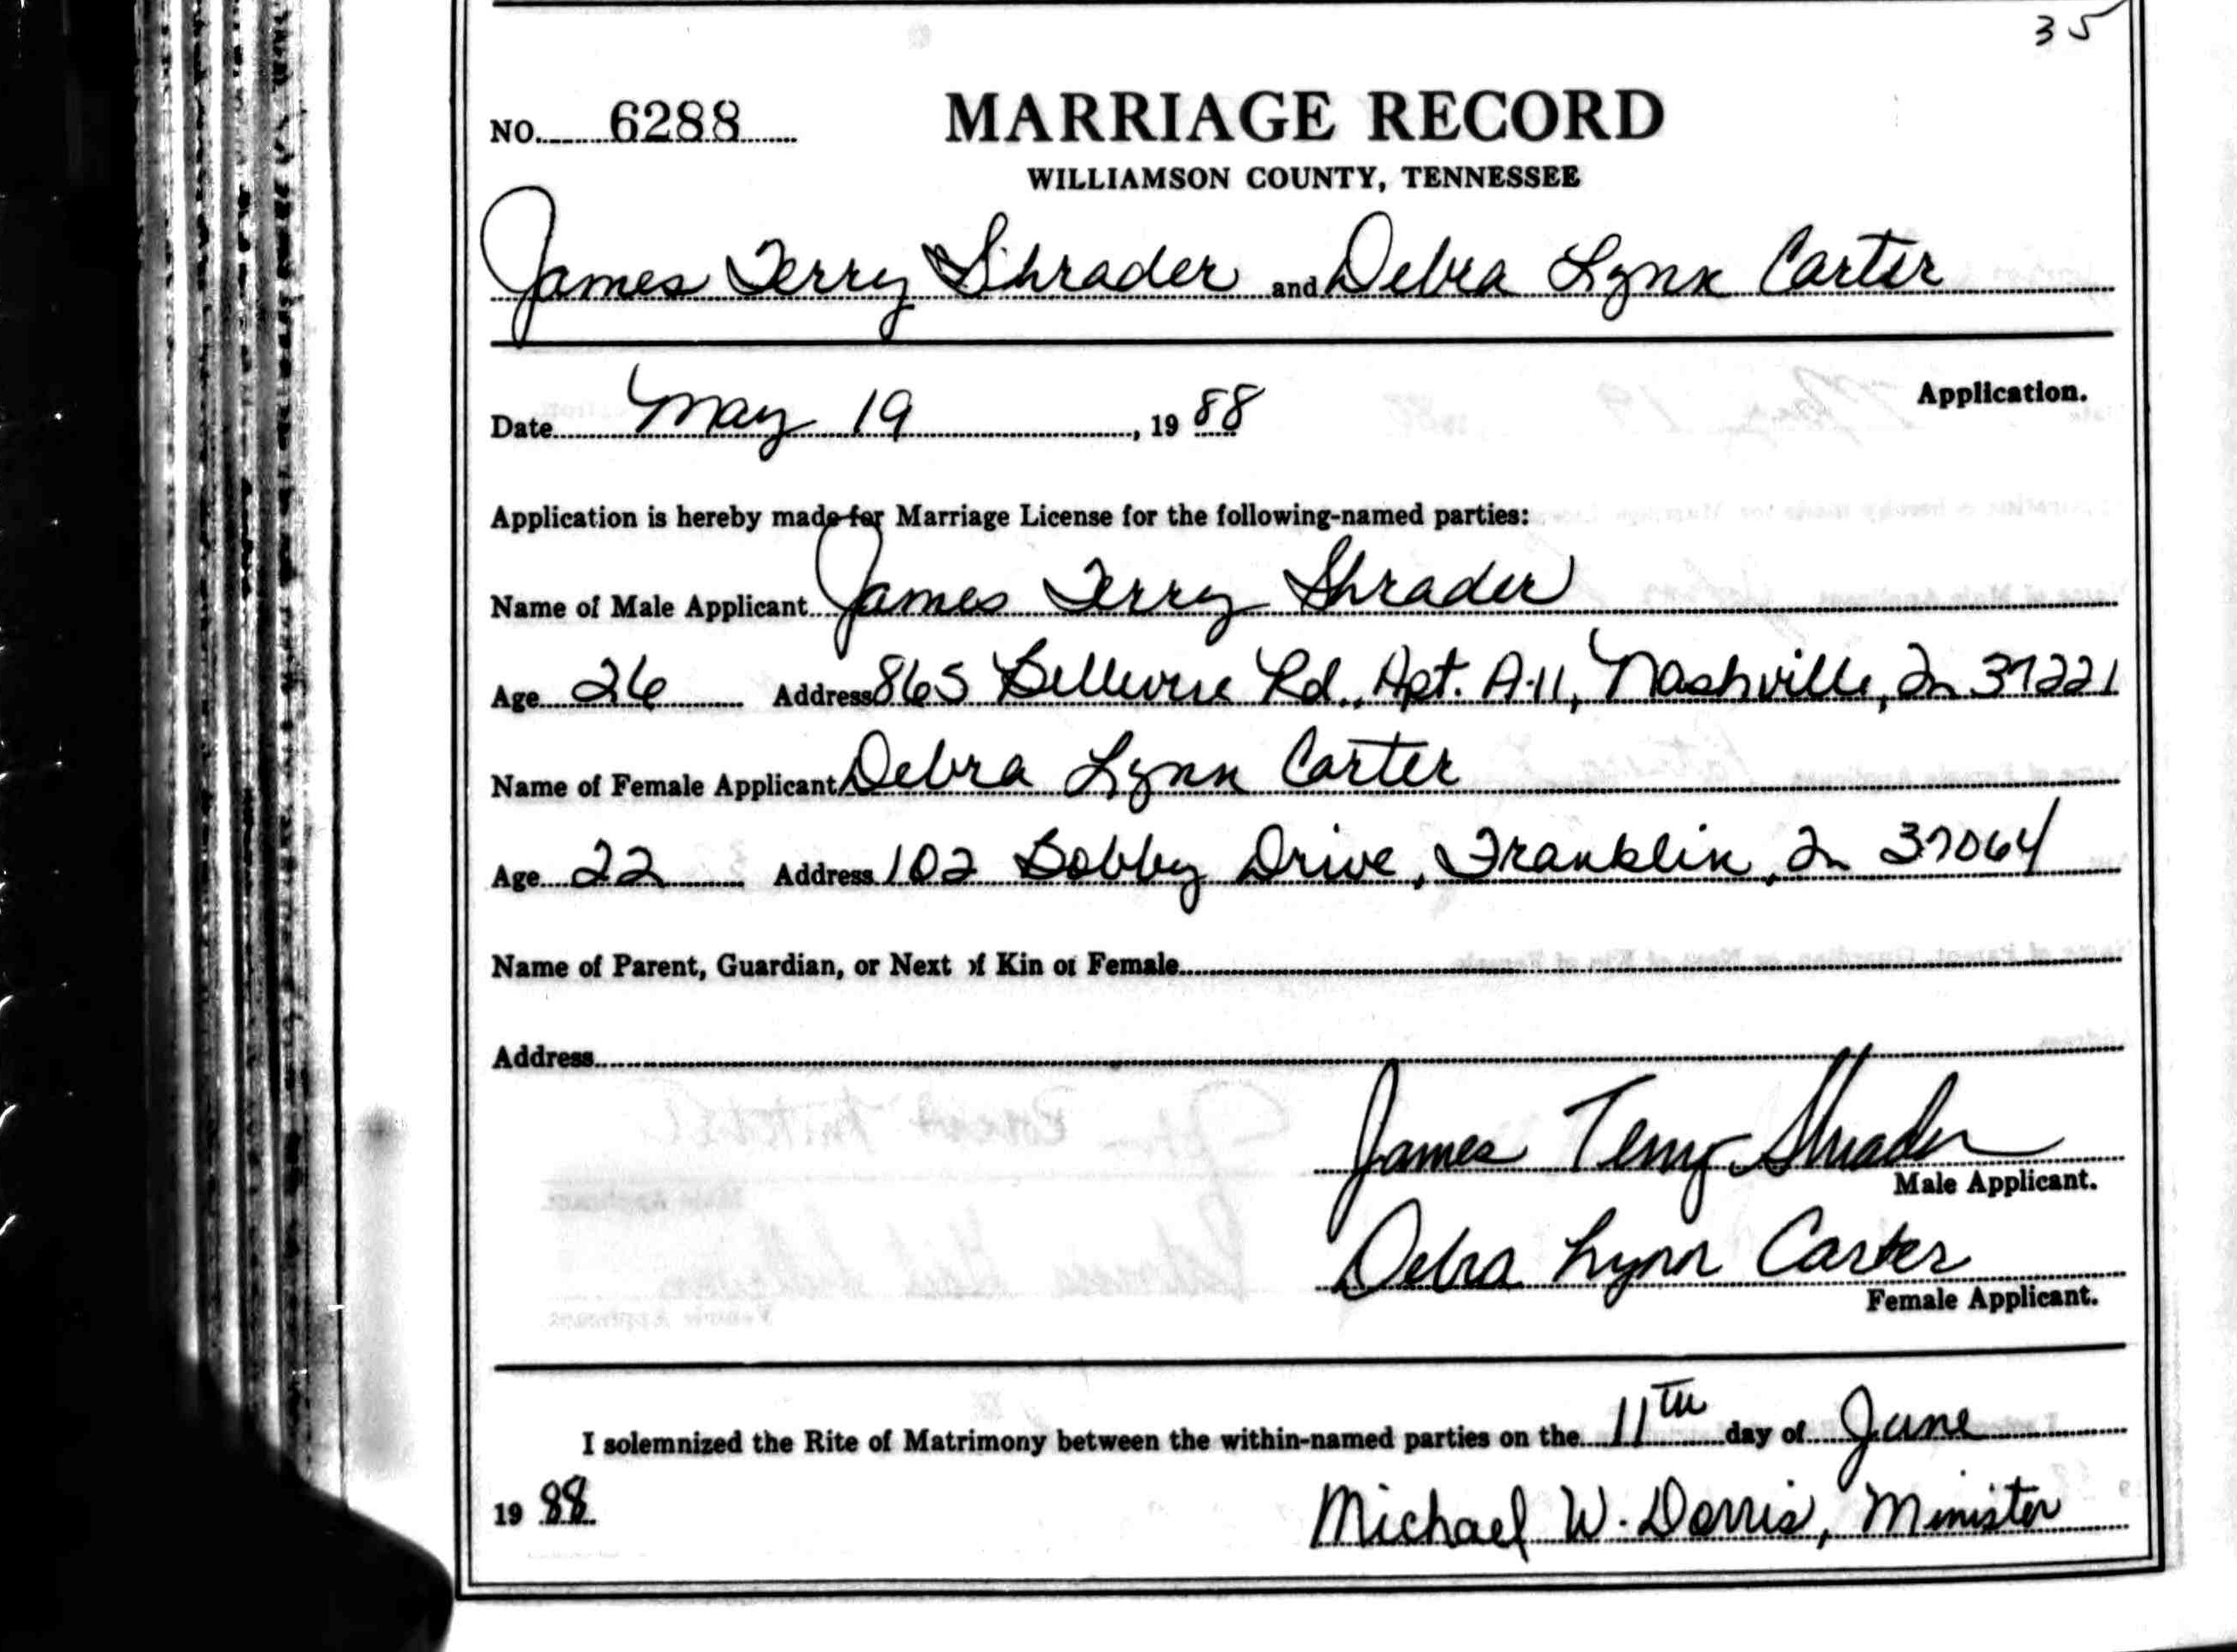 35
NO. 6288 MARRIAGE RECORD
WILLIAMSON COUNTY, TENNESSEE
James Terry Shrader and Debra Lynn Carter
Application.
Date May 19, 19 88
Application is hereby made for Marriage License for the following-named parties:
Name of Male Applicant James Terry Shrader
Age 26 Address 865 Bellevue Rd., Apt. A-11, Nashville, Tn 37221
Name of Female Applicant Debra Lynn Carter
Age 22 Address 102 Bobby Drive, Franklin, Tn 37064
Name of Parent, Guardian, or Next of Kin of Female
Address
James Terry Shrader
Male Applicant.
Debra Lynn Carter
Female Applicant.
I solemnized the Rite of Matrimony between the within-named parties on the 11th day of June
19 88
Michael W. Dorris, Minister